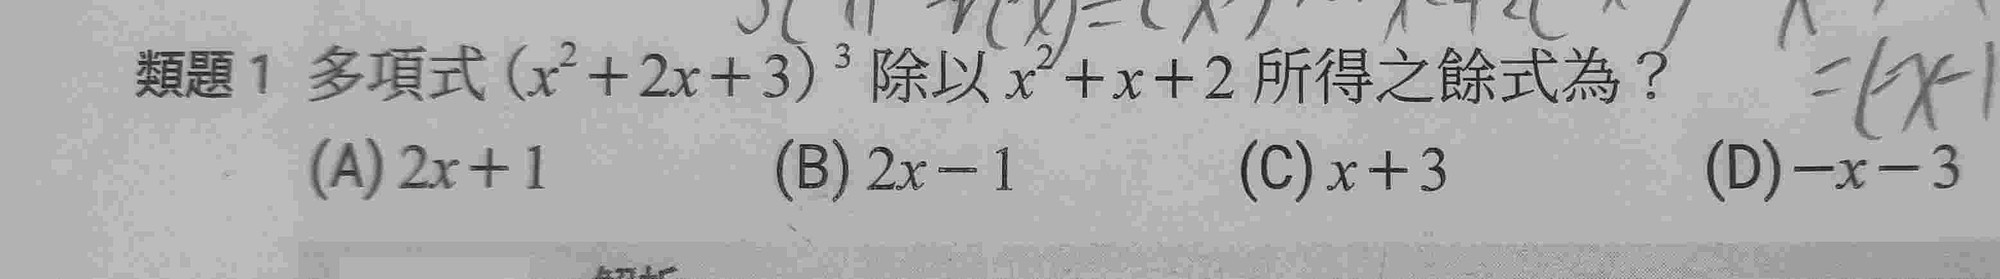 類題1 多項式 (x²+2x+3)³ 除以 x²+x+2 所得之餘式為？
=(-x-1
(A) 2x+1 (B) 2x-1 (C) x+3 (D) -x-3